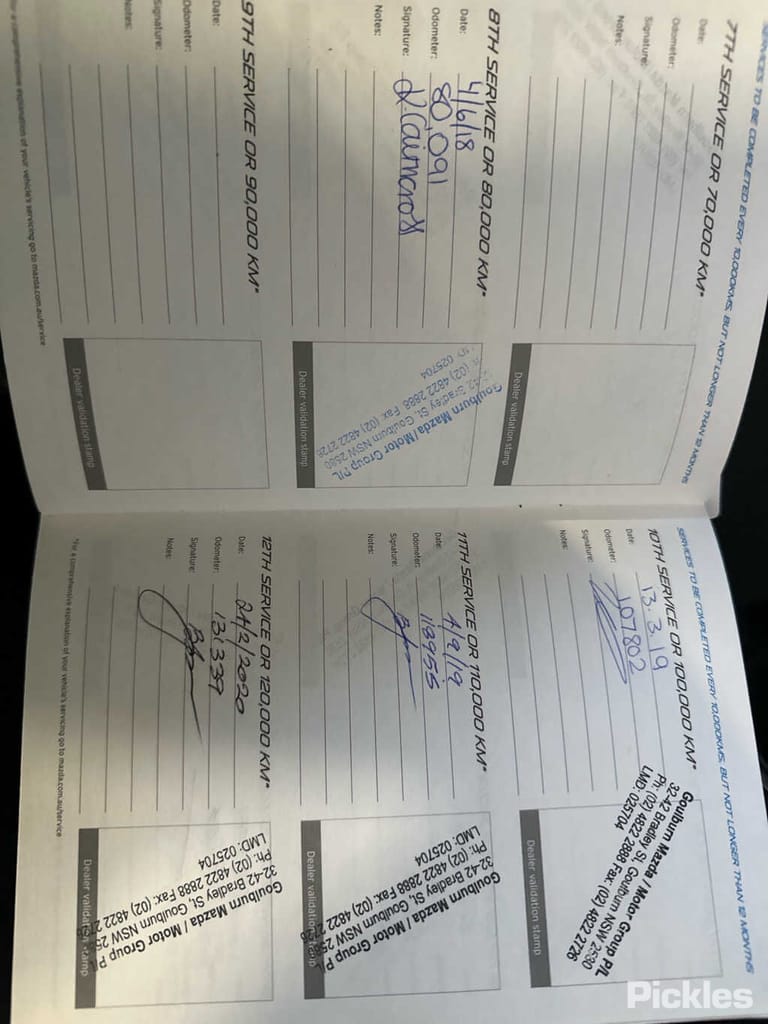 SERVICES TO BE COMPLETED EVERY 10,000KMS, BUT NOT LONGER THAN 12 MONTHS
7TH SERVICE OR 70,000 KM*
Date:
Odometer:
Signature:
Notes:
Dealer validation stamp
8TH SERVICE OR 80,000 KM*
Date: 4/6/18
Odometer: 80,091
Signature: K. Cairncross
Notes:
Dealer validation stamp
Goulburn Mazda / Motor Group P/L
32-42 Bradley St, Goulburn NSW 2580
Ph: (02) 4822 2888 Fax: (02) 4822 2726
025704
9TH SERVICE OR 90,000 KM*
Date:
Odometer:
Signature:
Notes:
Dealer validation stamp
*For a comprehensive explanation of your vehicle's servicing go to mazda.com.au/service
SERVICES TO BE COMPLETED EVERY 10,000KMS, BUT NOT LONGER THAN 12 MONTHS
10TH SERVICE OR 100,000 KM*
Date: 13.3.19
Odometer: 107802
Signature:
Notes:
Dealer validation stamp
Goulburn Mazda / Motor Group P/L
32-42 Bradley St, Goulburn NSW 2580
Ph: (02) 4822 2888 Fax: (02) 4822 2726
LMD: 025704
11TH SERVICE OR 110,000 KM*
Date: 4/9/19
Odometer: 118955
Signature:
Notes:
Dealer validation stamp
Goulburn Mazda / Motor Group P/L
32-42 Bradley St, Goulburn NSW 258
Ph: (02) 4822 2888 Fax: (02) 4822 2726
LMD: 025704
12TH SERVICE OR 120,000 KM*
Date: 24/2/2020
Odometer: 131339
Signature:
Notes:
Dealer validation stamp
Goulburn Mazda / Motor Group P/L
32-42 Bradley St, Goulburn NSW 258
Ph: (02) 4822 2888 Fax: (02) 4822 2726
LMD: 025704
*For a comprehensive explanation of your vehicle's servicing go to mazda.com.au/service
Pickles